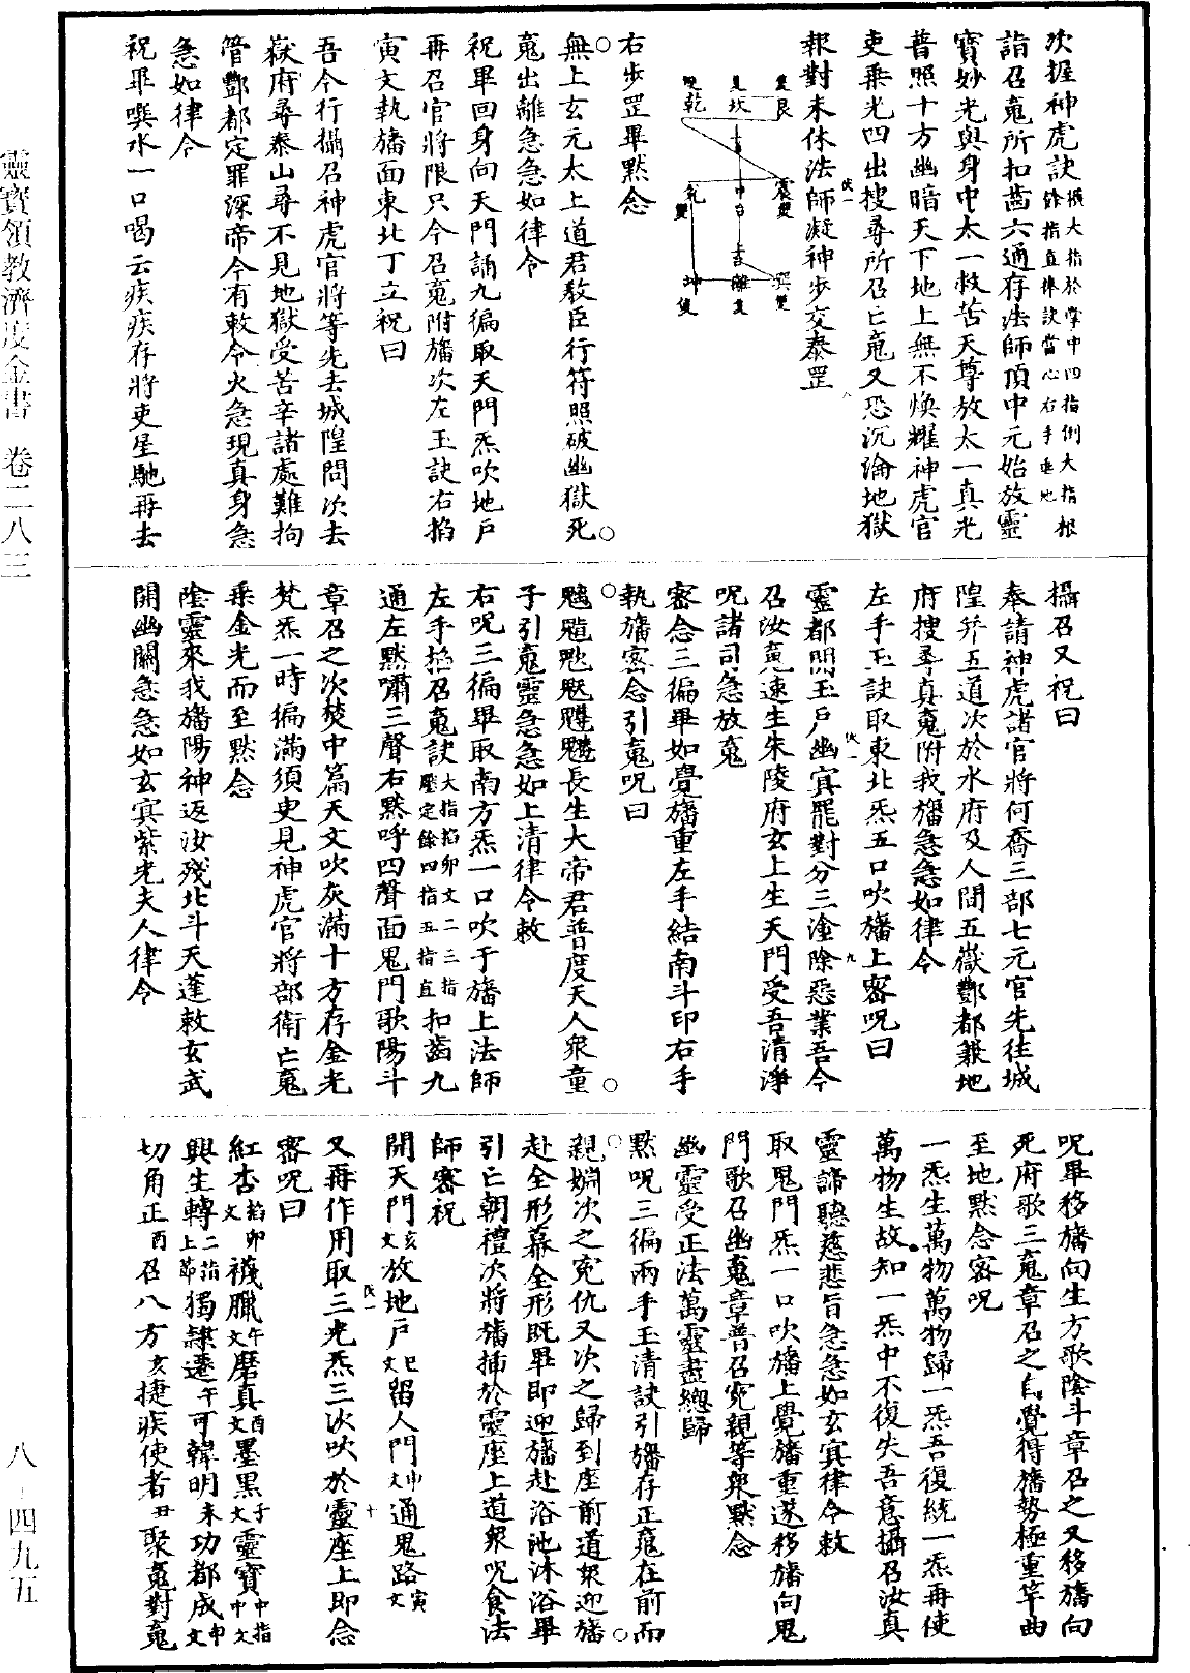 靈寶領教濟度金書　卷二八三
次握神虎訣橫大指於掌中四指倒大指根餘指直捧訣當心右手垂地
詣召䰟所扣齒六通存法師頂中元始放靈
寶妙光與身中太一救苦天尊放太一真光
普照十方幽暗天下地上無不煥耀神虎官
吏乘光四出搜尋所召亡䰟又恐沉淪地獄
報對未休法師凝神步交泰罡
右步罡畢黙念
無上玄元太上道君敎臣行符照破幽獄死
䰟出離急急如律令
祝畢回身向天門誦九徧取天門炁吹地戶
再召官將限只今召䰟附旛次左玉訣右掐
寅文執旛面東北丁立祝曰
吾今行攝召神虎官將等先去城隍問次去
嶽府尋泰山尋不見地獄受苦辛諸處難拘
管酆都定罪深帝令有敕令火急現真身急
急如律令
祝畢噀水一口喝云疾疾疾存將吏星馳再去
攝召又祝曰
奉請神虎諸官將何喬三部七元官先往城
隍并五道次於水府及人間五嶽酆都兼地
府搜尋真䰟附我旛急急如律令
左手玉訣取東北炁五口吹旛上密呪曰
靈都開玉戶幽冥罷對分三塗除惡業吾今
召汝䰟速生朱陵府玄上生天門受吾清淨
呪諸司急放䰟
密念三徧畢如覺旛重左手結南斗印右手
執旛密念引䰟呪曰
長生大帝君普度天人衆童
子引䰟靈急急如上清律令敕
右呪三徧畢取南方炁一口吹于旛上法師
左手掐召䰟訣大指掐卯文二三指壓定餘四指五指直扣齒九
通左黙嘯三聲右黙呼四聲面鬼門歌陽斗
章召之次焚中篇天文吹灰滿十方存金光
梵炁一時徧滿須吏見神虎官將部衛亡䰟
乘金光而至黙念
陰靈來我旛陽神返汝殘北斗天蓬敕玄武
開幽關急急如玄冥紫光夫人律令
呪畢移旛向生方歌陰斗章召之又移旛向
死府歌三䰟章召之自覺得旛勢極重竿曲
至地黙念密呪
一炁生萬物萬物歸一炁吾復統一炁再使
萬物生故知一炁中不復失吾意攝召汝真
靈諦聽慈悲旨急急如玄冥律令敕
取鬼門炁一口吹旛上覺旛重遂移旛向鬼
門歌召幽䰟章普召寃親等衆黙念
幽靈受正法萬靈盡總歸
黙呪三徧兩手玉清訣引旛存正䰟在前而
親婣次之寃仇又次之歸到座前道衆迎旛
赴全形幕全形既畢即迎旛赴浴池沐浴畢
引亡朝禮次將旛揷於靈座上道衆呪食法
師密祝
開天門亥文放地戶巳文留人門申文通鬼路寅文
又再作用取三光炁三次吹於靈座上即念
密呪曰
紅杏掐卯文襪臘午文磨真酉文墨黑子文靈寶中指中文
興生轉二指上節獨隸遷午可韓明未功都成申文
切角正酉召八方亥捷疾使者丑聚䰟對䰟
八－四九五